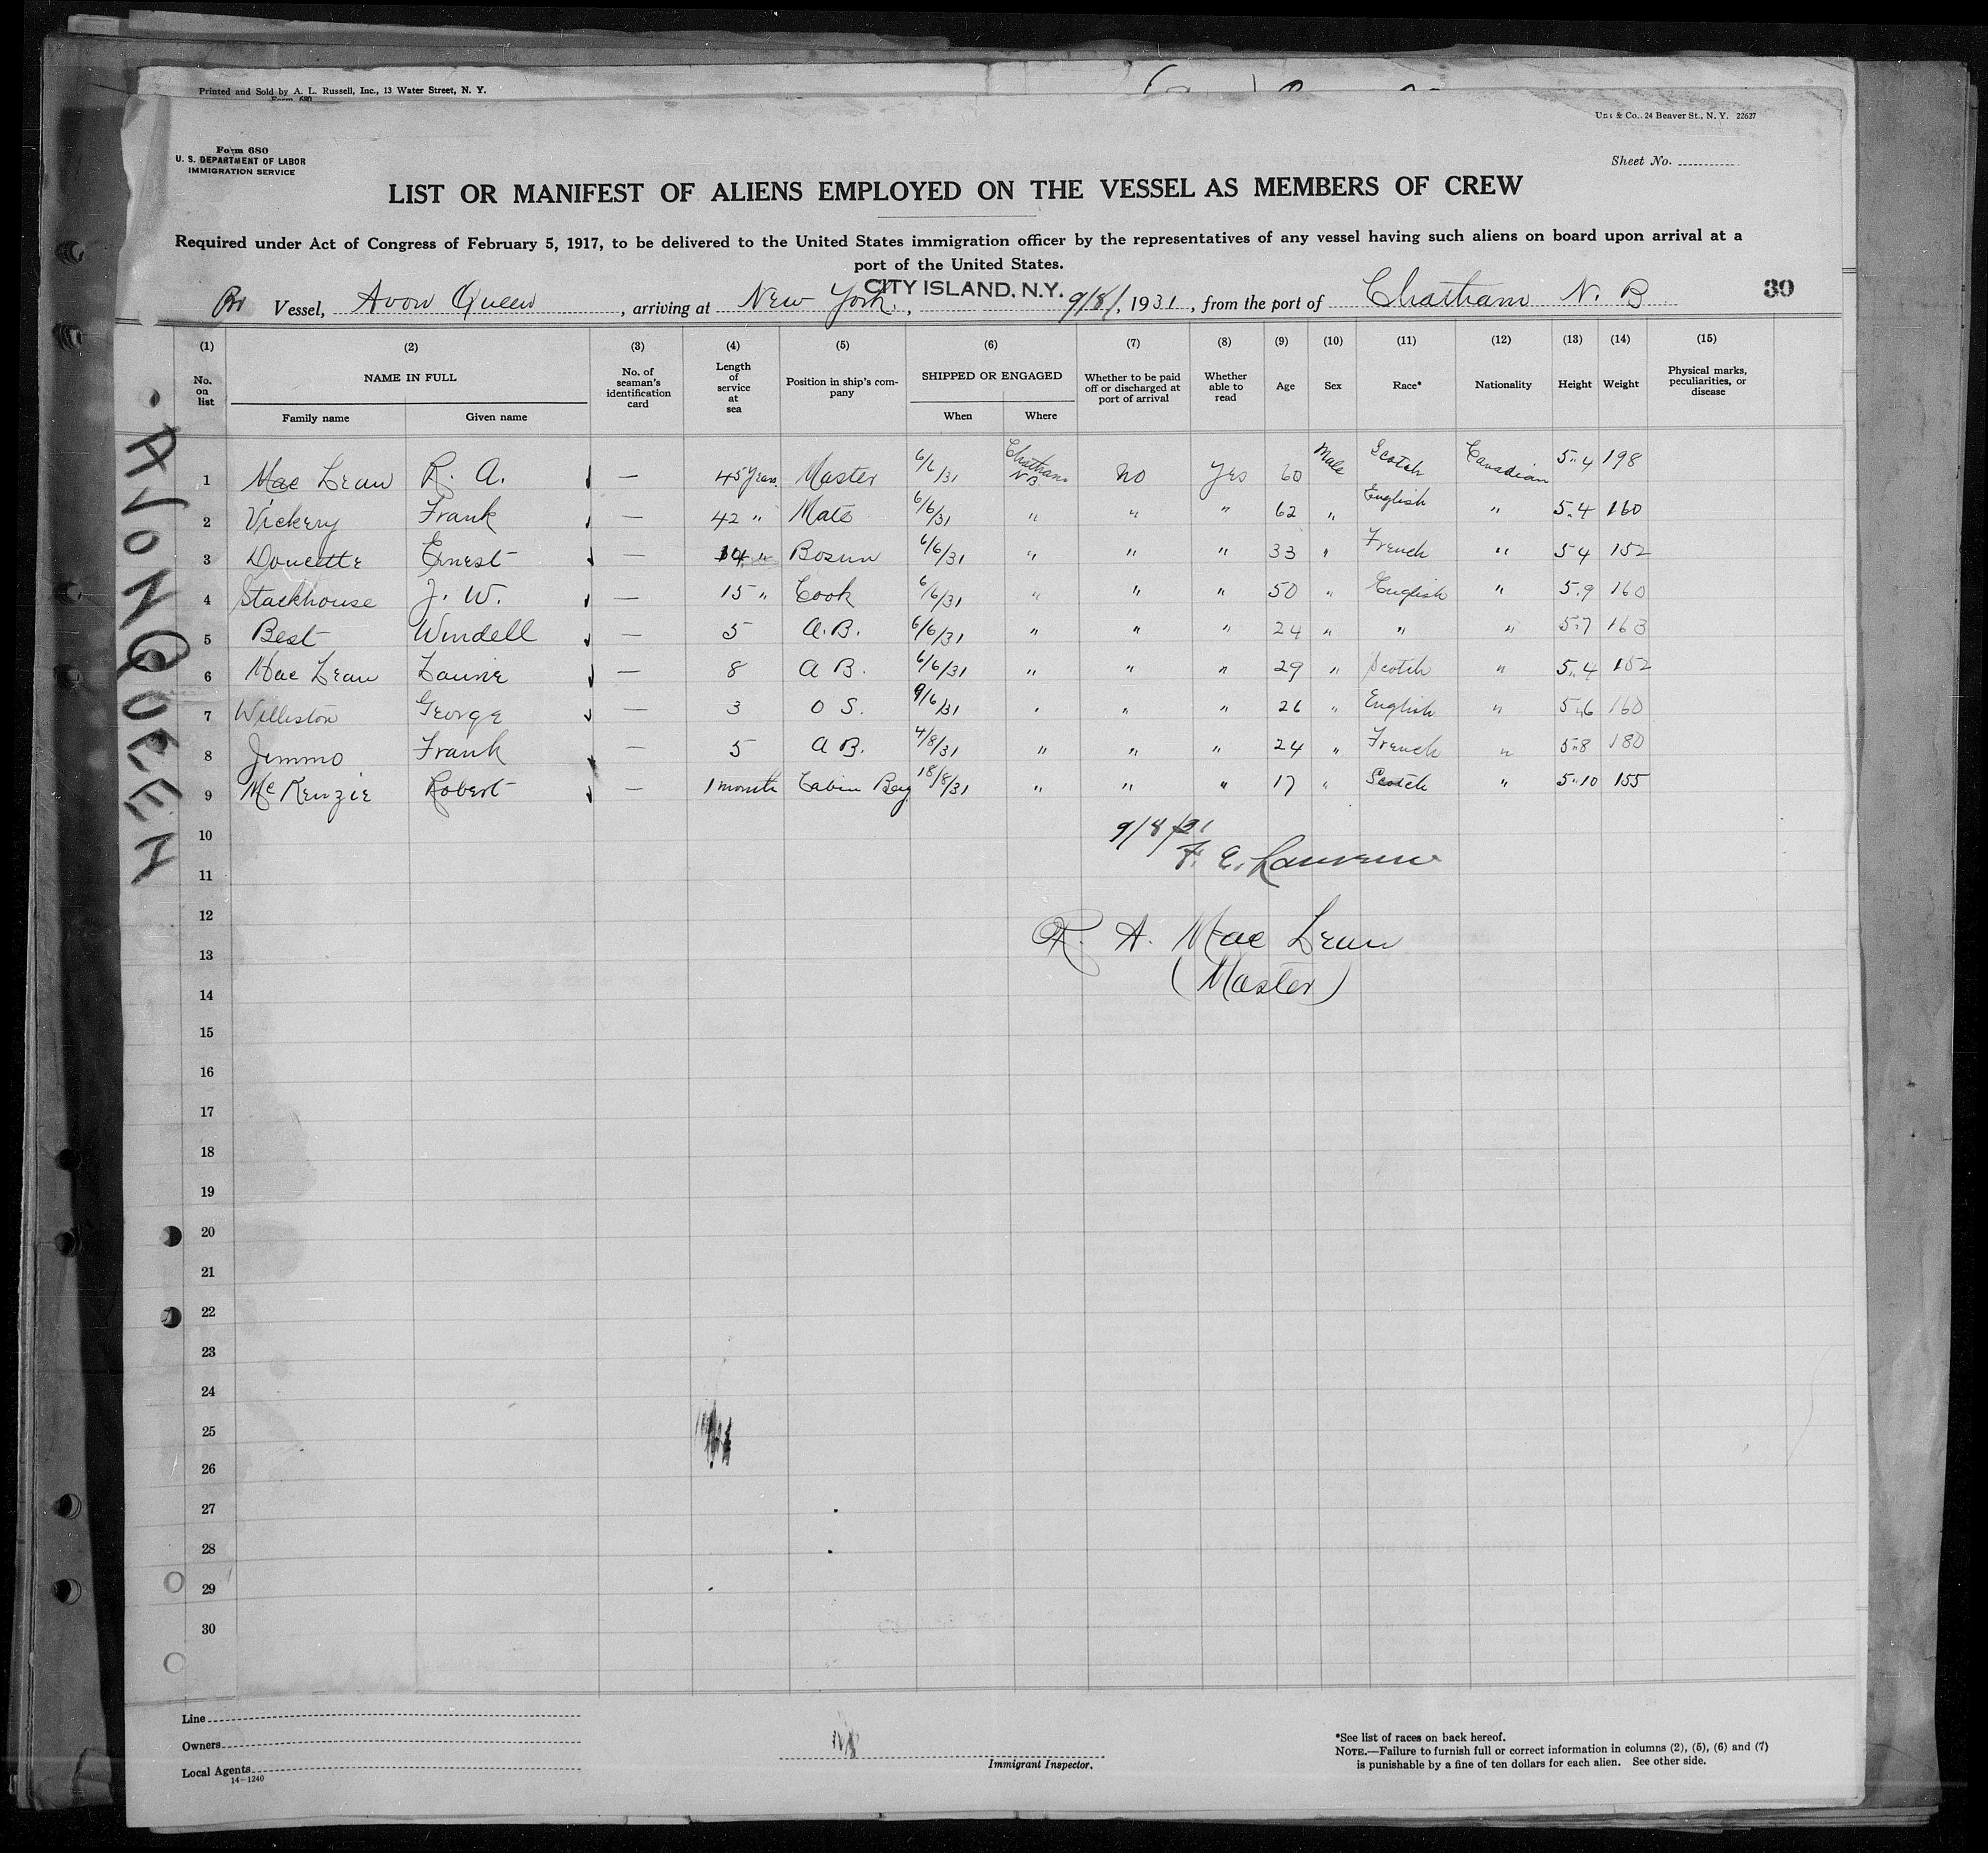 Printed and Sold by A. L. Russell, Inc., 13 Water Street, N. Y.
Form 680
& Co., 24 Beaver St., N. Y. 22627
Form 680
U. S. DEPARTMENT OF LABOR
IMMIGRATION SERVICE
Sheet No.
LIST OR MANIFEST OF ALIENS EMPLOYED ON THE VESSEL AS MEMBERS OF CREW
Required under Act of Congress of February 5, 1917, to be delivered to the United States immigration officer by the representatives of any vessel having such aliens on board upon arrival at a
port of the United States.
CITY ISLAND, N.Y.
Br Vessel, Avon Queen, arriving at New York, 9/8/, 1931, from the port of Chatham N. B 30
(1) (2) (3) (4) (5) (6) (7) (8) (9) (10) (11) (12) (13) (14) (15)
No. on list
NAME IN FULL
Family name Given name
No. of seaman's identification card
Length of service at sea
Position in ship's company
SHIPPED OR ENGAGED
When Where
Whether to be paid off or discharged at port of arrival
Whether able to read
Age Sex Race* Nationality Height Weight
Physical marks, peculiarities, or disease
1 Mac Lean R. A. — 45 years Master 6/6/31 Chatham N B No Yes 60 Male Scotch Canadian 5..4 198
2 Vickery Frank — 42 " Mate 6/6/31 " " " 62 " English " 5.4 160
3 Doucette Ernest — 14 " Bosun 6/6/31 " " " 33 " French " 5 4 152
4 Stackhouse J. W. — 15 " Cook 6/6/31 " " " 50 " English " 5.9 160
5 Best Windell — 5 A. B. 6/6/31 " " " 24 " " " 5.7 163
6 Mac Lean Laurie — 8 A B. 6/6/31 " " " 29 " Scotch " 5..4 152
7 Williston George — 3 O S. 9/6/31 " " " 26 " English " 5..6 160
8 Jimmo Frank — 5 A B. 4/8/31 " " " 24 " French " 5.8 180
9 Mc Kenzie Robert — 1 month Cabin Boy 18/8/31 " " " 17 " Scotch " 5.10 155
10
9/8/31
11
F. E. Lawrence
12
R. A. Mac Lean
13
(Master)
14
15
16
17
18
19
20
21
22
23
24
25
26
27
28
29
30
AVON QUEEN
Line
Owners
Local Agents
14—1240
Immigrant Inspector.
*See list of races on back hereof.
NOTE.—Failure to furnish full or correct information in columns (2), (5), (6) and (7)
is punishable by a fine of ten dollars for each alien. See other side.